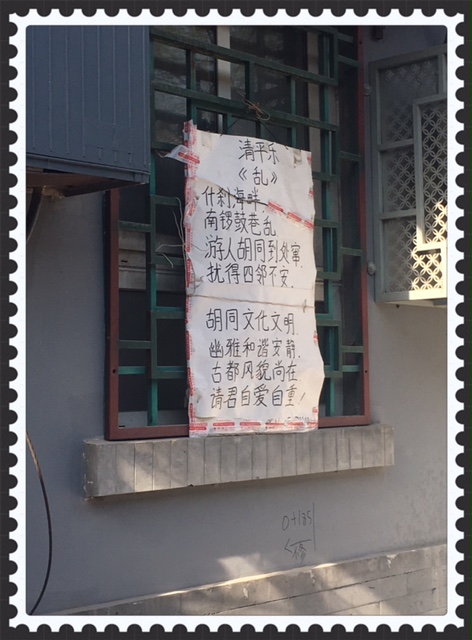 清平乐
《乱》
什刹海畔
南锣鼓巷乱
游人胡同到处窜
扰得四邻不安.
胡同文化文明
幽雅和谐安静.
古都风貌尚在
请君自爱自重!
0+185